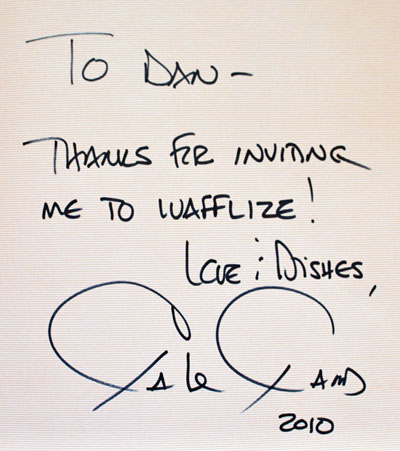 To DAN -
THANKS FOR INVITING
ME TO WAFFLIZE!
LOVE & DISHES,
Gale Gand
2010